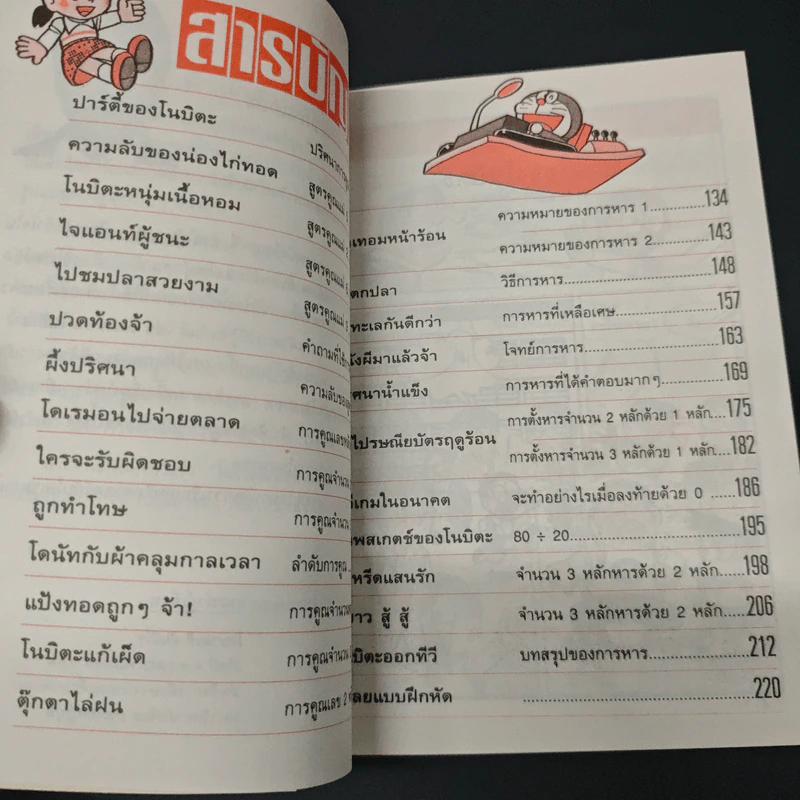 สารบัญ
ปาร์ตี้ของโนบิตะ
ความลับของน่องไก่ทอด
โนบิตะหนุ่มเนื้อหอม สูตรคูณแม่
ไจแอนท์ผู้ชนะ สูตรคูณแม่
ไปชมปลาสวยงาม สูตรคูณแม่
ปวดท้องจ้า สูตรคูณแม่
ผึ้งปริศนา
โดเรมอนไปจ่ายตลาด
ใครจะรับผิดชอบ การคูณจำนวน
ถูกทำโทษ การคูณจำนวน
โดนัทกับผ้าคลุมกาลเวลา ลำดับการคูณ
แป้งทอดถูกๆ จ้า! การคูณจำนวน
โนบิตะแก้เผ็ด การคูณจำนวน
ตุ๊กตาไล่ฝน การคูณเลข 2
ความหมายของการหาร 1.............134
เทอมหน้าร้อน
ความหมายของการหาร 2.............143
ตกปลา วิธีการหาร.............148
ทะเลกันดีกว่า การหารที่เหลือเศษ.............157
ผีมาแล้วจ้า โจทย์การหาร.............163
ศนาน้ำแข็ง การหารที่ได้คำตอบมากๆ.............169
การตั้งหารจำนวน 2 หลักด้วย 1 หลัก....175
ไปรษณียบัตรฤดูร้อน
การตั้งหารจำนวน 3 หลักด้วย 1 หลัก....182
เกมในอนาคต จะทำอย่างไรเมื่อลงท้ายด้วย 0 ......186
พสเกตช์ของโนบิตะ 80 ÷ 20.............195
หรีดแสนรัก จำนวน 3 หลักหารด้วย 2 หลัก......198
าว สู้ สู้ จำนวน 3 หลักหารด้วย 2 หลัก......206
บิตะออกทีวี บทสรุปของการหาร.............212
ลยแบบฝึกหัด .............220